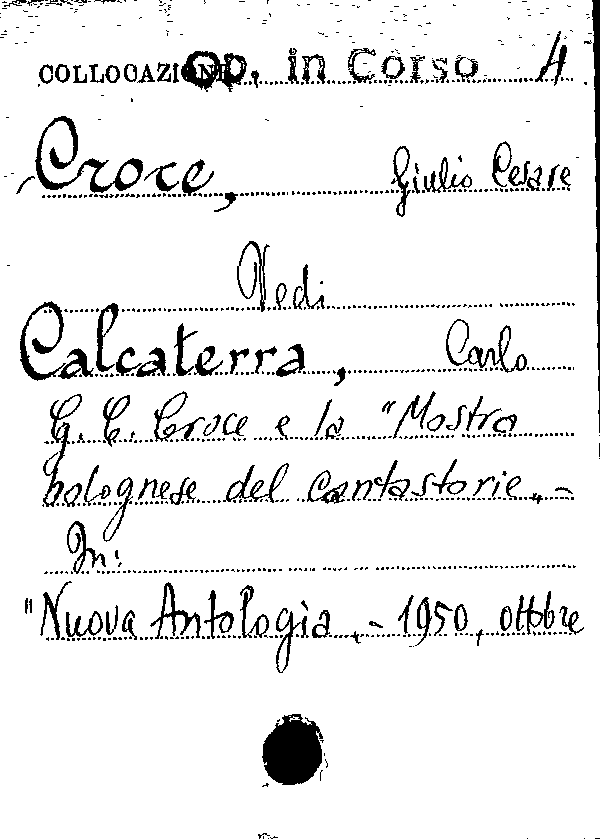 COLLOCAZIONE Op. in Corso 4
Croce, Giulio Cesare
Vedi
Calcaterra, Carlo
G. C. Croce e la "Mostra
bolognese del cantastorie„ -
In:
"Nuova Antologia„ - 1950, ottobre